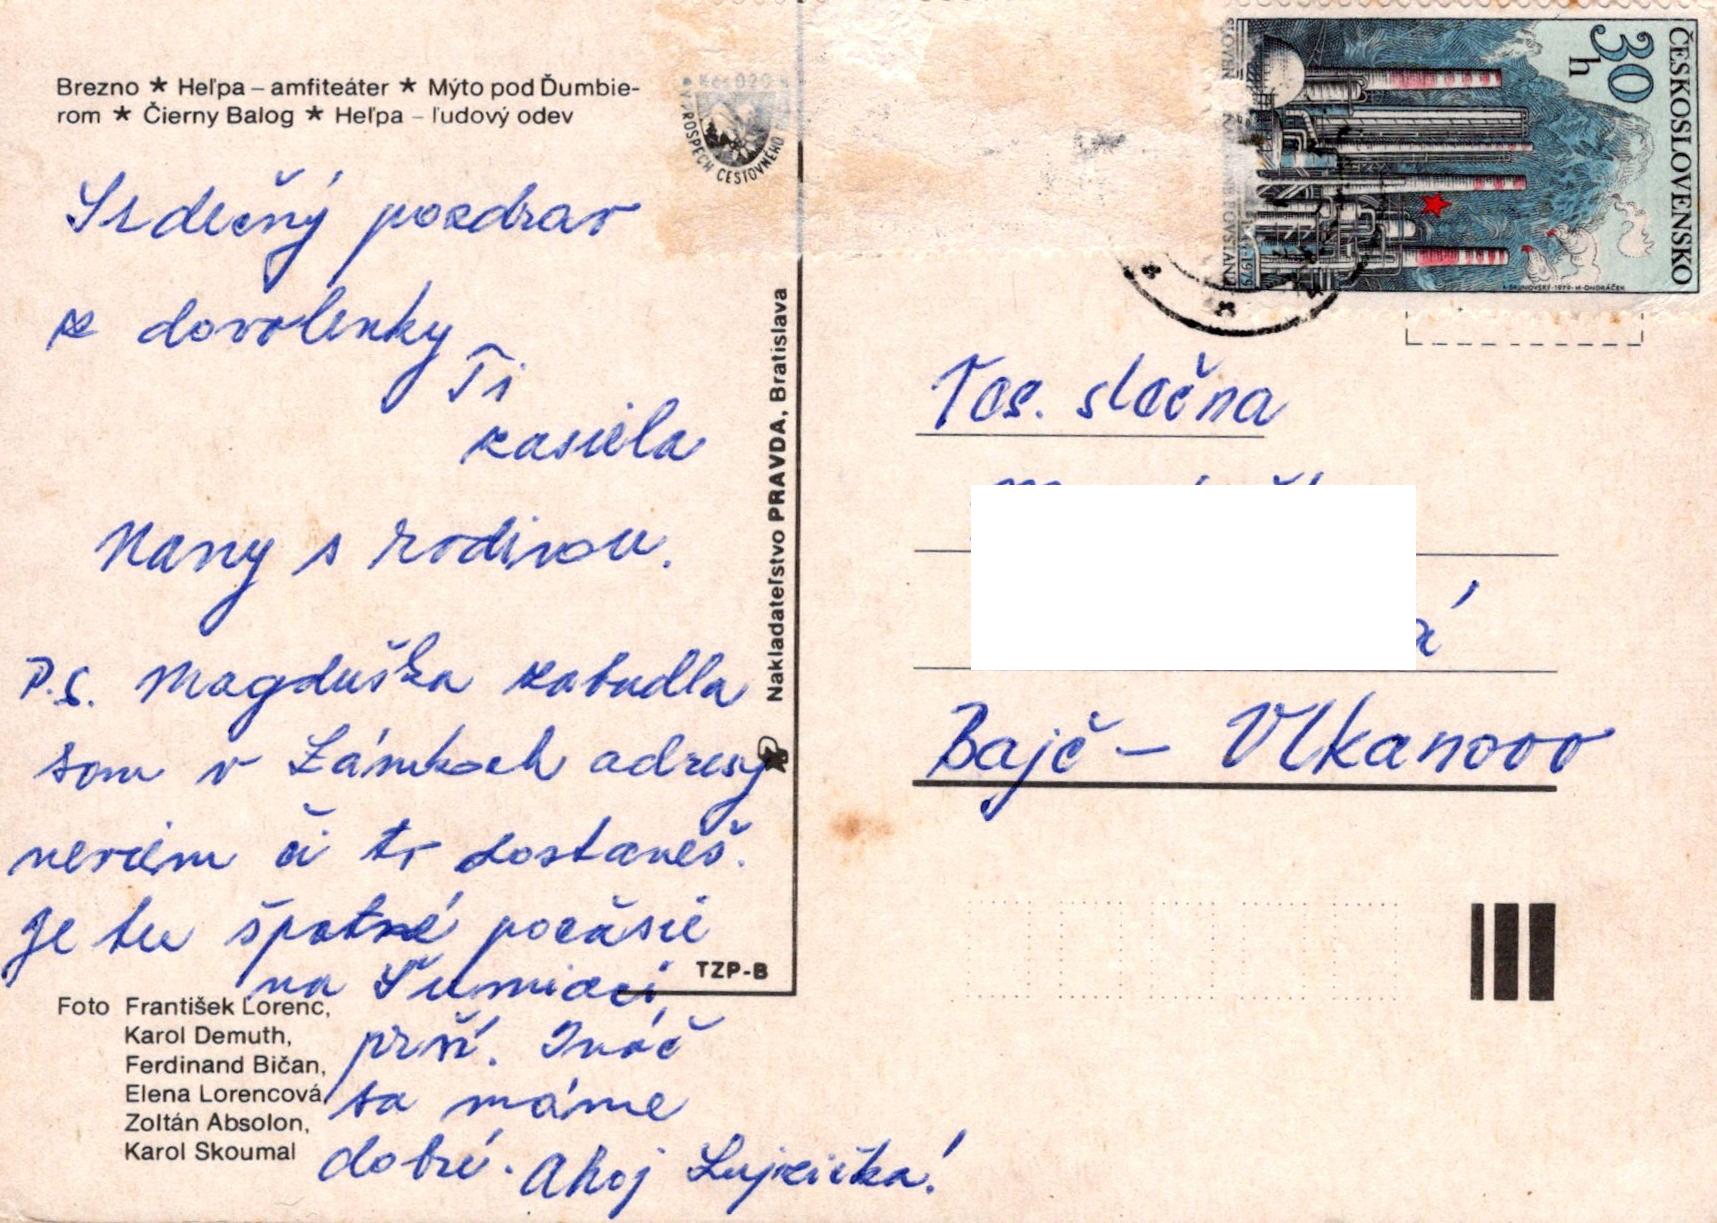 Brezno * Heľpa – amfiteáter * Mýto pod Ďumbie-
rom * Čierny Balog * Heľpa – ľudový odev
Kčs 0,20
V PROSPECH CESTOVNÉHO
Srdečný pozdrav
z dovolenky
Ti
zasiela
Nany s rodinou.
P.S. Magduška zabudla
som v Zámkoch adresy
neviem či to dostaneš.
Je tu špatné počasie
na Šumiaci
prší. Ináč
sa máme
dobre. Ahoj Lujzička!
Foto František Lorenc,
Karol Demuth,
Ferdinand Bičan,
Elena Lorencová,
Zoltán Absolon,
Karol Skoumal
Nakladateľstvo PRAVDA, Bratislava
TZP-B
ČESKOSLOVENSKO
30
h
A. BRUNOVSKÝ · 1979 · M. ONDRÁČEK
Vás. slečna
á
Bajč – Vlkanovo